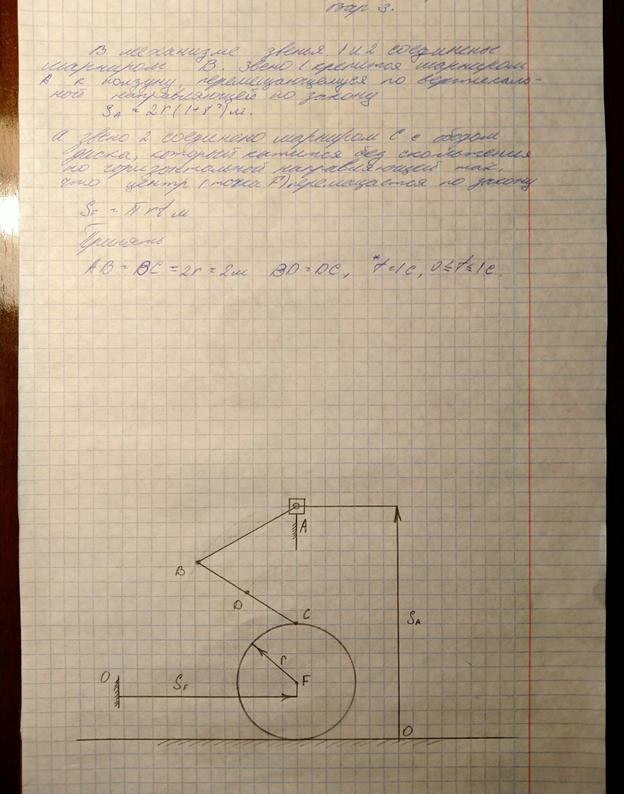 Вар 3.
В механизме звенья 1 и 2 соединены
шарниром В. Звено 1 крепится шарниром
А к ползуну, перемещающемуся по вертикаль-
ной направляющей по закону
S_A = 2r(1+t²) м.
А звено 2 соединено шарниром С с ободом
диска, который катится без скольжения
по горизонтальной направляющей так,
что центр (точка F) перемещается по закону
S_F = πrt м
Принять
AB = BC = 2r = 2м BD = DC, *t = 1c, 0 ≤ t ≤ 1c.
A
B
D
C
S_A
r
O
S_F
F
O